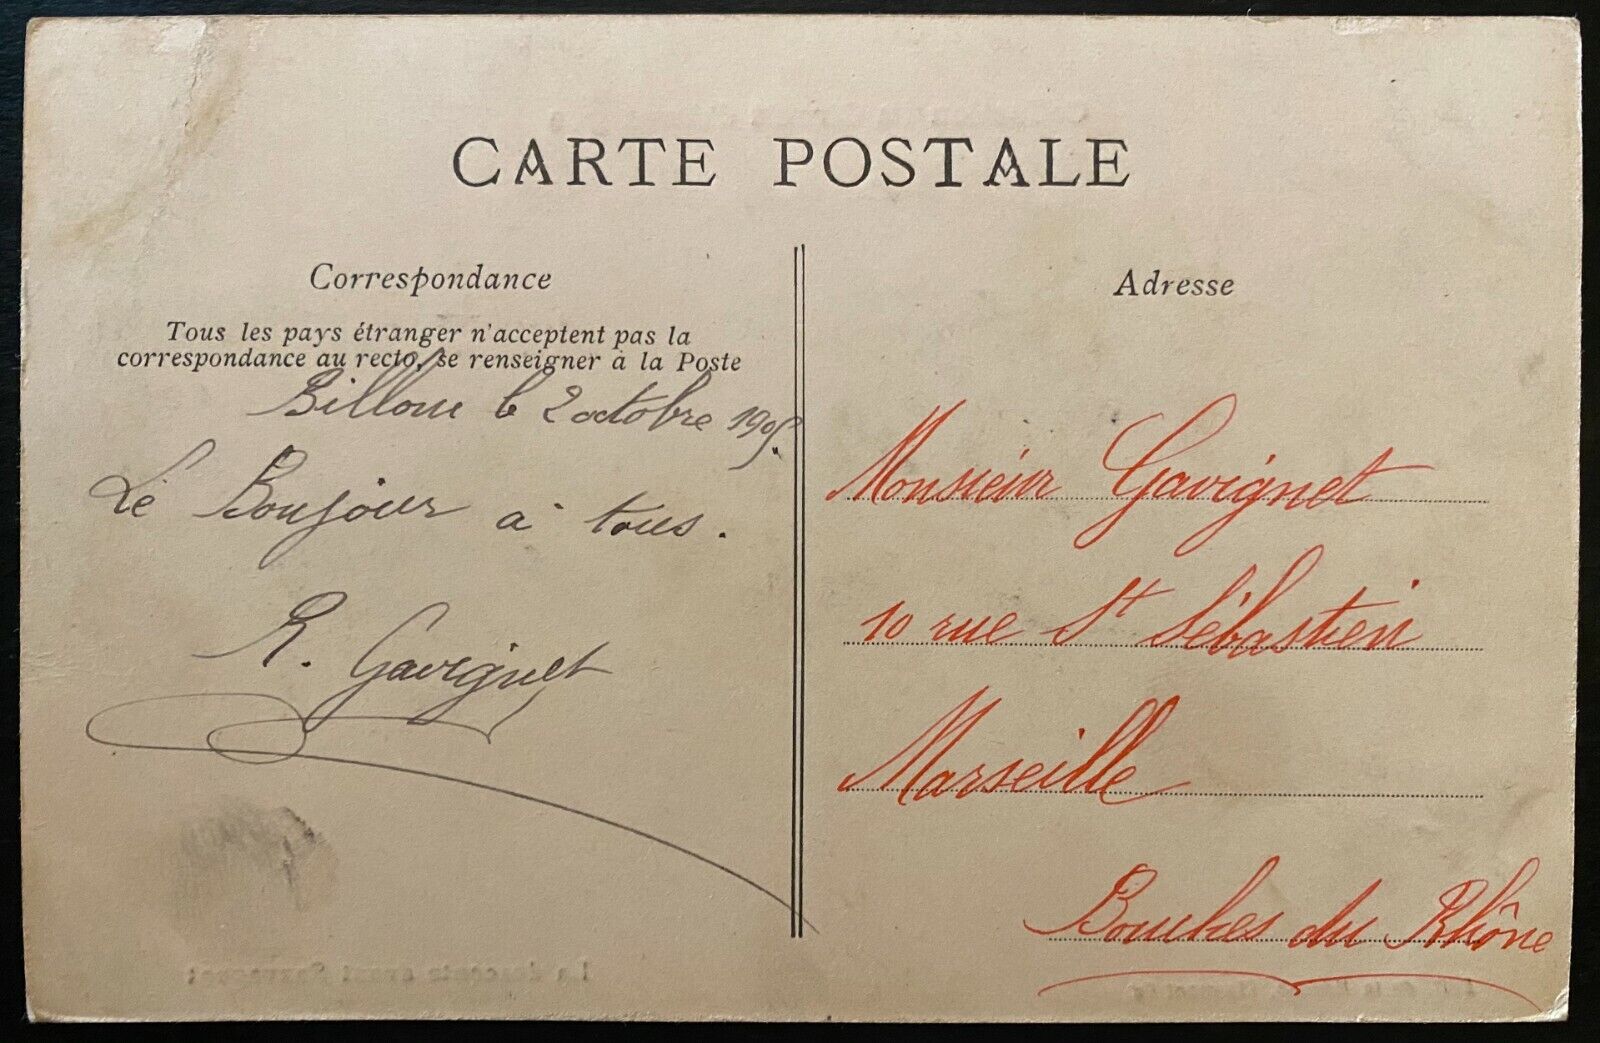 CARTE POSTALE
Correspondance
Tous les pays étranger n'acceptent pas la
correspondance au recto, se renseigner à la Poste
le 2 octobre 1905.
Le Bonjour à tous.
Gavignet
Adresse
Monsieur Gavignet
10 rue St Sébastien
Marseille
Bouches du Rhône